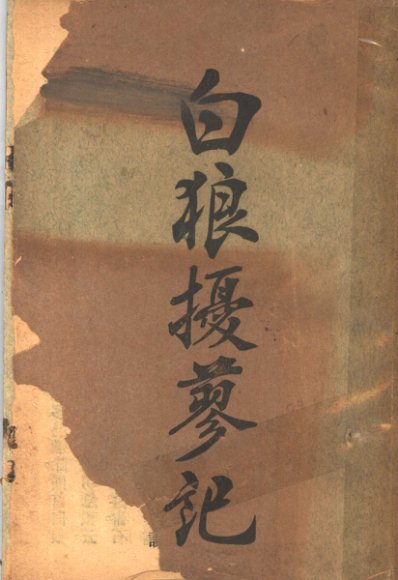 白狼擾蓼記